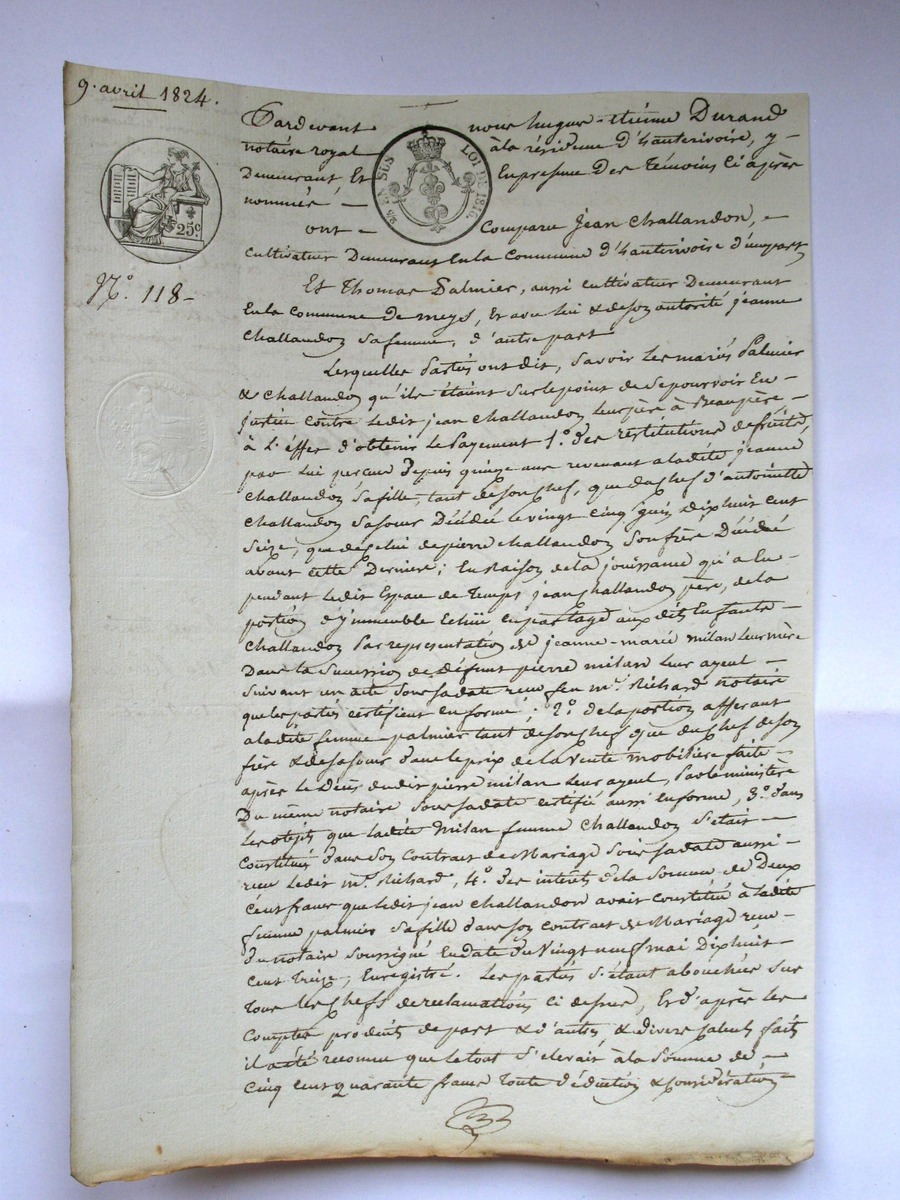 9. avril 1824.
25 c
EN SUS
LOI DE 1816.
N.o 118 -
Pardevant nous hugue-étiénne Durand
notaire royal à la résidence d'hauterivoire, y -
Demeurant Et En presence Des Témoins Ci après
nommés -
ont - Comparu Jean Challandon, -
Cultivateur Demeurant En la Commune d'hauterivoire d'une part
Et Thomas Palmier, aussi Cultivateur Demeurant
En la Commune De meys, et avec lui & de son autorité jeanne
Challandon sa femme, d'autre part
Lesquelles Partiés ont dit, Savoir Les mariés Palmier
& Challandon qu'ils étaient sur le point de se pourvoir En -
justice contre Ledit jean Challandon Leur père & Beaupère -
à L'effet d'obtenir Le Payement 1.o des restitutions de fruits,
par Lui perçus Depuis quinze ans revenant a ladite jeanne
Challandon sa fille, tant de son chef, que du chef d'antoinette
Challandon sa soeur Décédée Le vingt cinq juin Dix huit cent
Seize, que de celui de pierre Challandon son frère Décédé
avant cette Derniere; En Raison de la jouissance qu'a Eu -
pendant Ledit Espace de Temps jean Challandon père, de la
portion d'immeuble Echue en partage aux dits Enfants -
Challandon Par representation de jeanne-marie milan Leur mère
Dans la Succession de Défunt pierre milan Leur ayeul -
Suivant un acte sous sa date reçu feu m.e Richard notaire
que les partiés certifient en forme; 2.o de la portion afferant
a ladite femme palmier tant de son chef que du chef de son
frère & de sa soeur dans le prix de la vente mobiliére faite -
après Le Décès du dit pierre milan Leur ayeul, Par le ministère
Du même notaire sous sa date certifié aussi en forme, 3.o dans
Les objets que ladite Milan femme Challandon s'était -
Constitués dans son Contrat de Mariage sous sa date aussi -
reçu Ledit m.e Richard, 4.o des interets de la Somme de Deux
Cent francs que Ledit jean Challandon avait constitué à ladite
femme palmier sa fille dans son contrat de Mariage reçu -
du notaire Soussigné En date du Vingt neuf mai Dix huit -
Cent Treize, Enregistré. Les partiés s'étant abouchées sur
Tous Les chefs de reclamations Ci dessus, Et d'après Les
Comptes produits de part & d'autre, & divers calculs faits
il a été reconnu que le tout s'elevait à la Somme de -
Cinq Cent quarante francs Toute déduction & Considération -